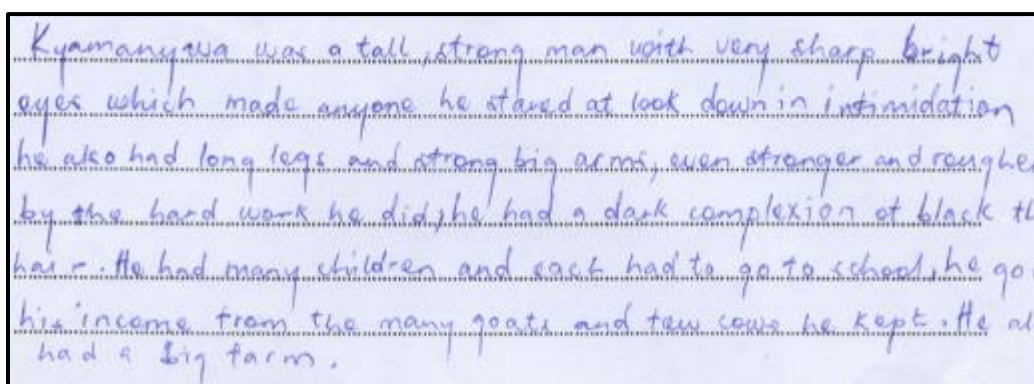 Kyamanywa was a tall, strong man with very sharp bright
eyes which made anyone he stared at look down in intimidation
he also had long legs and strong big arms, even stronger and roughe
by the hard work he did, he had a dark complexion of black th
hair. He had many children and each had to go to school, he go
his income from the many goats and few cows he kept. He al
had a big farm.